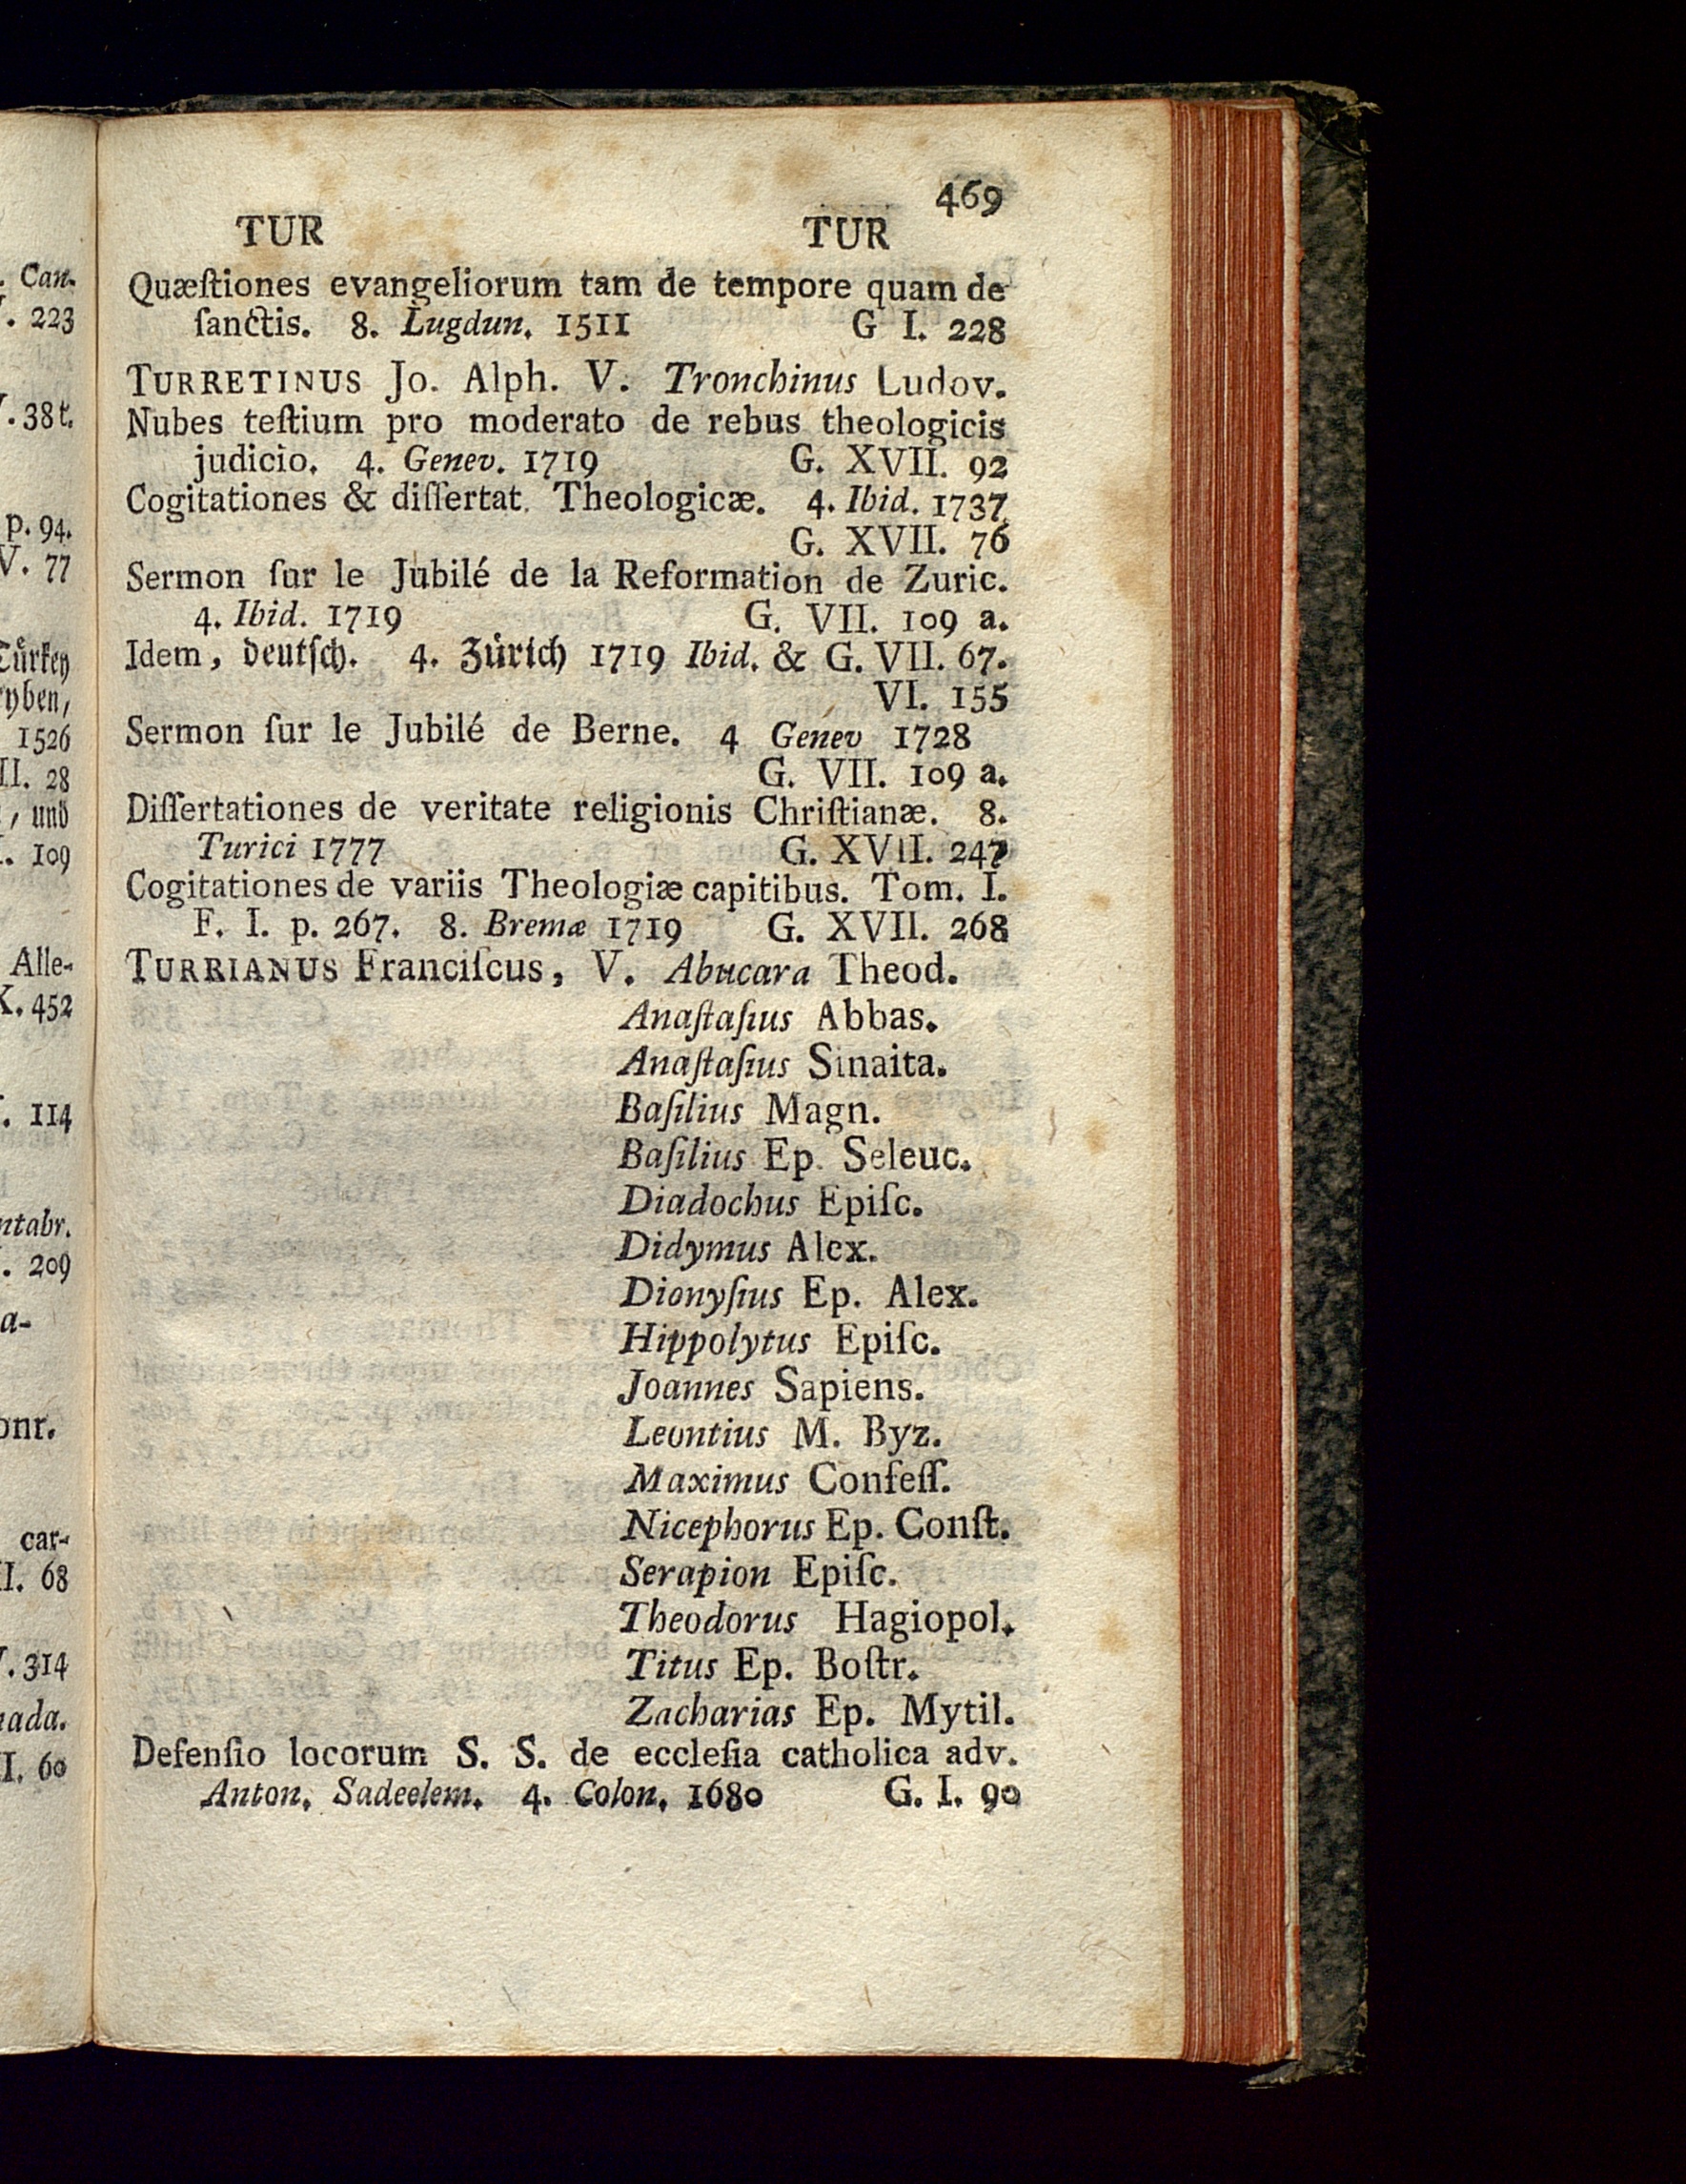 469
TUR TUR
Quæſtiones evangeliorum tam de tempore quam de
ſanctis. 8. Lugdun. 1511 G I. 228
TURRETINUS Jo. Alph. V. Tronchinus Ludov.
Nubes teſtium pro moderato de rebus theologicis
judicio. 4. Genev. 1719 G. XVII. 92
Cogitationes & diſſertat. Theologicæ. 4. Ibid. 1737.
G. XVII. 76
Sermon ſur le Jubilé de la Reformation de Zuric.
4. Ibid. 1719 G. VII. 109 a.
Idem, deutſch. 4. Zürich 1719 Ibid. & G. VII. 67.
VI. 155
Sermon ſur le Jubilé de Berne. 4 Genev 1728
G. VII. 109 a.
Diſſertationes de veritate religionis Chriſtianæ. 8.
Turici 1777 G. XVII. 247
Cogitationes de variis Theologiæ capitibus. Tom. I.
F. I. p. 267. 8. Bremæ 1719 G. XVII. 268
TURRIANUS Franciſcus, V. Abucara Theod.
Anaſtaſius Abbas.
Anaſtaſius Sinaita.
Baſilius Magn.
Baſilius Ep. Seleuc.
Diadochus Epiſc.
Didymus Alex.
Dionyſius Ep. Alex.
Hippolytus Epiſc.
Joannes Sapiens.
Leontius M. Byz.
Maximus Confeſſ.
Nicephorus Ep. Conſt.
Serapion Epiſc.
Theodorus Hagiopol.
Titus Ep. Boſtr.
Zacharias Ep. Mytil.
Defenſio locorum S. S. de eccleſia catholica adv.
Anton. Sadeelem. 4. Colon. 1680 G. I. 90
Can.
. 223
. 38t.
p. 94.
V. 77
Türkey
yben,
1526
II. 28
, und
. 109
Alle-
X. 452
. 114
ntabr.
. 209
a-
onr.
car-
I. 68
. 314
ada.
I. 60